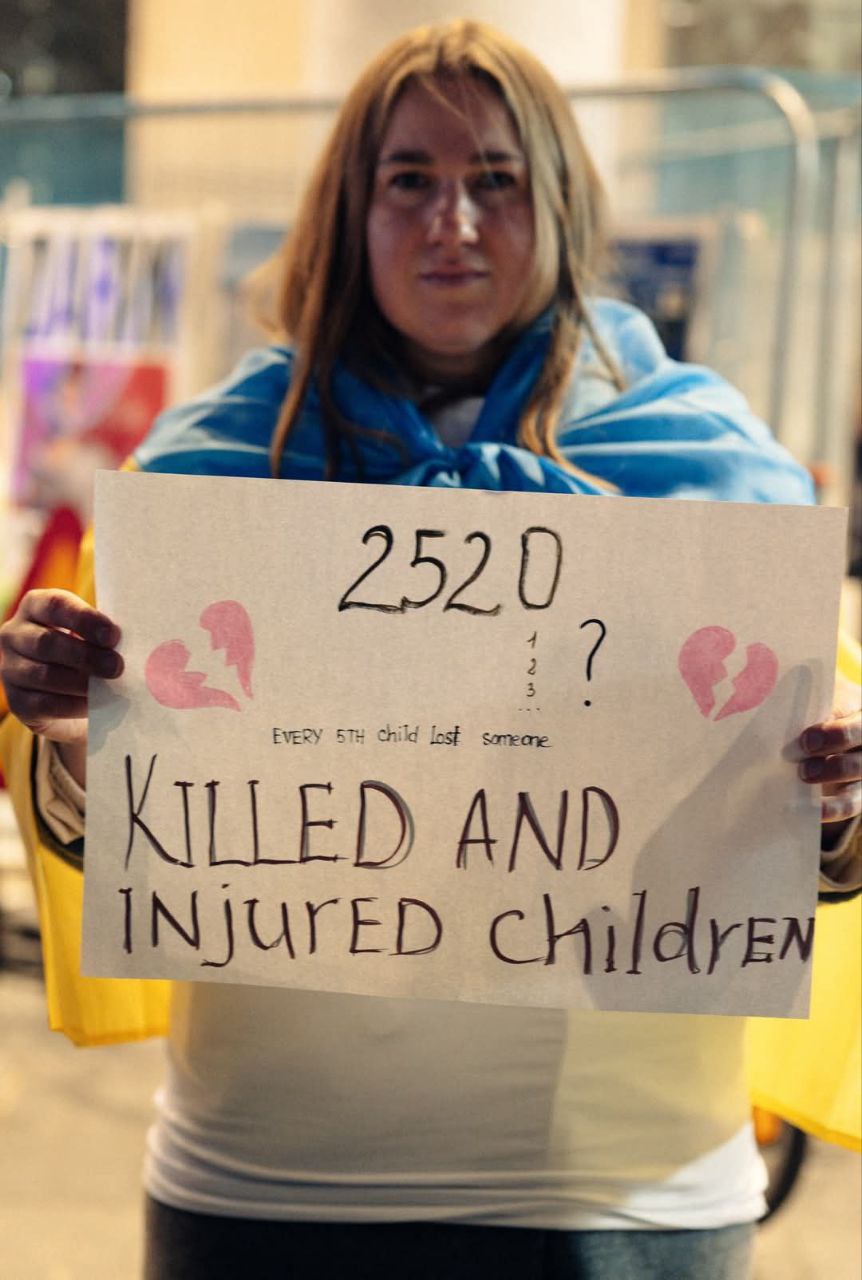 2520
1
2
3
...
?
EVERY 5TH child lost someone
KILLED AND
INjurED childrEN